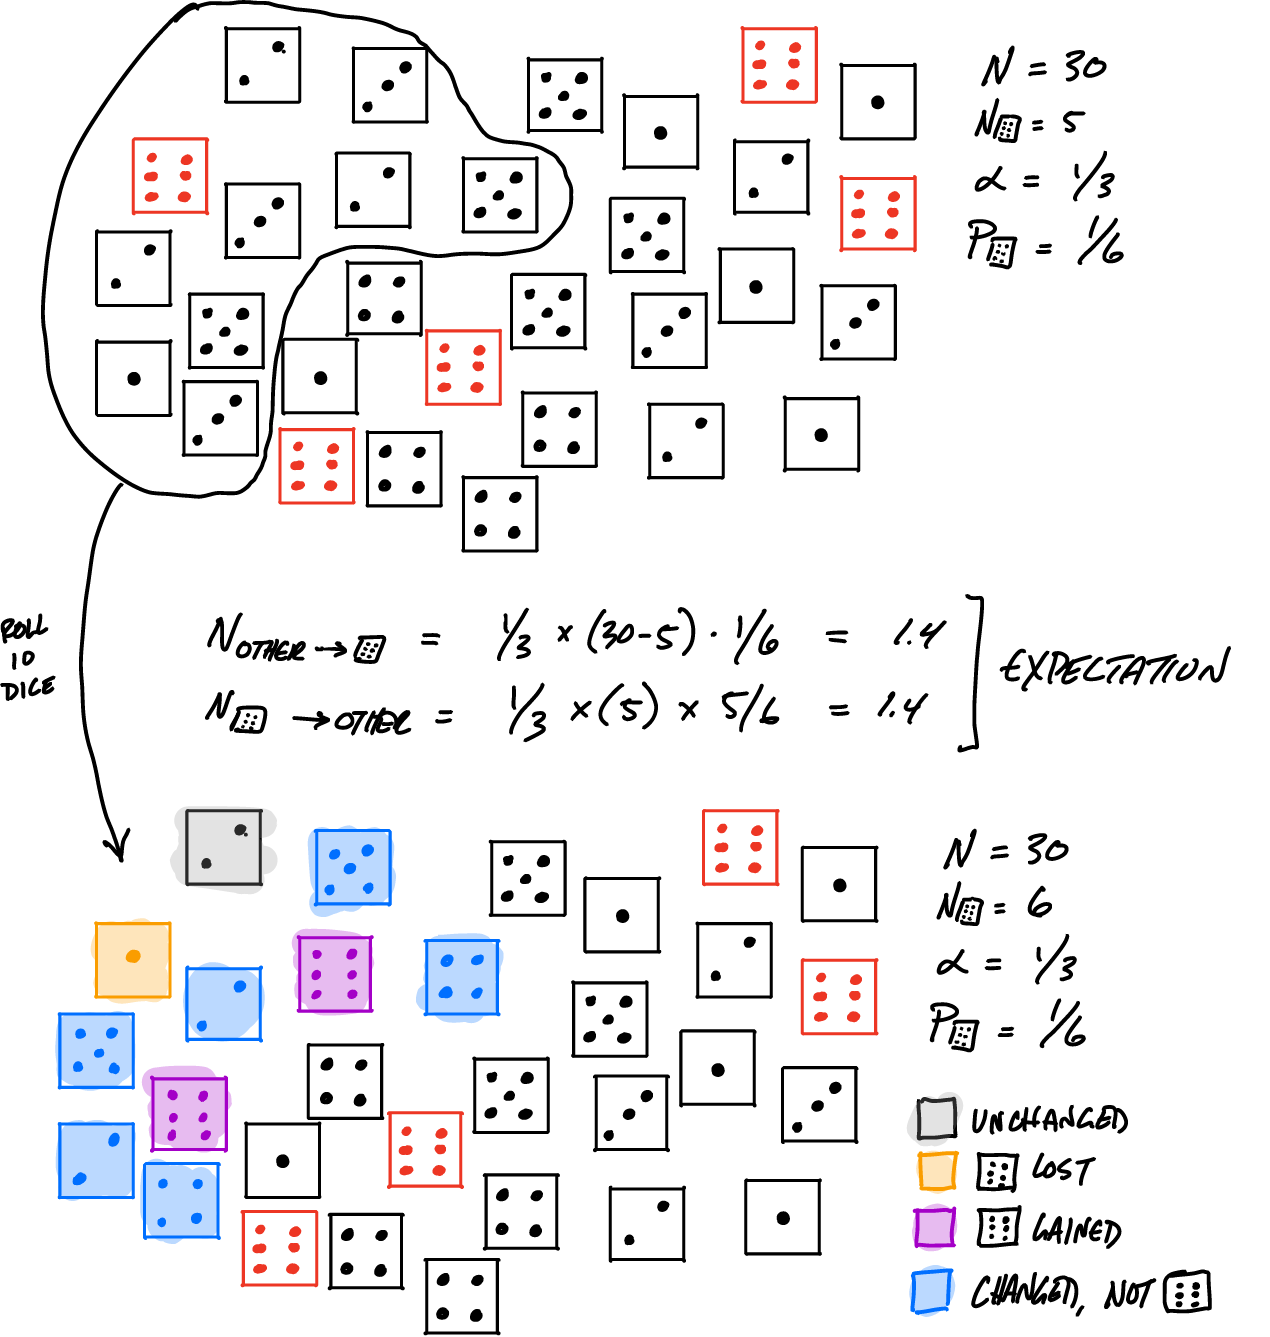 N = 30
N⚅ = 5
α = 1/3
P⚅ = 1/6
ROLL
10
DICE
N OTHER → ⚅ = 1/3 × (30-5) · 1/6 = 1.4
N ⚅ → OTHER = 1/3 × (5) × 5/6 = 1.4
EXPECTATION
N = 30
N⚅ = 6
α = 1/3
P⚅ = 1/6
UNCHANGED
⚅ LOST
⚅ GAINED
CHANGED, NOT ⚅